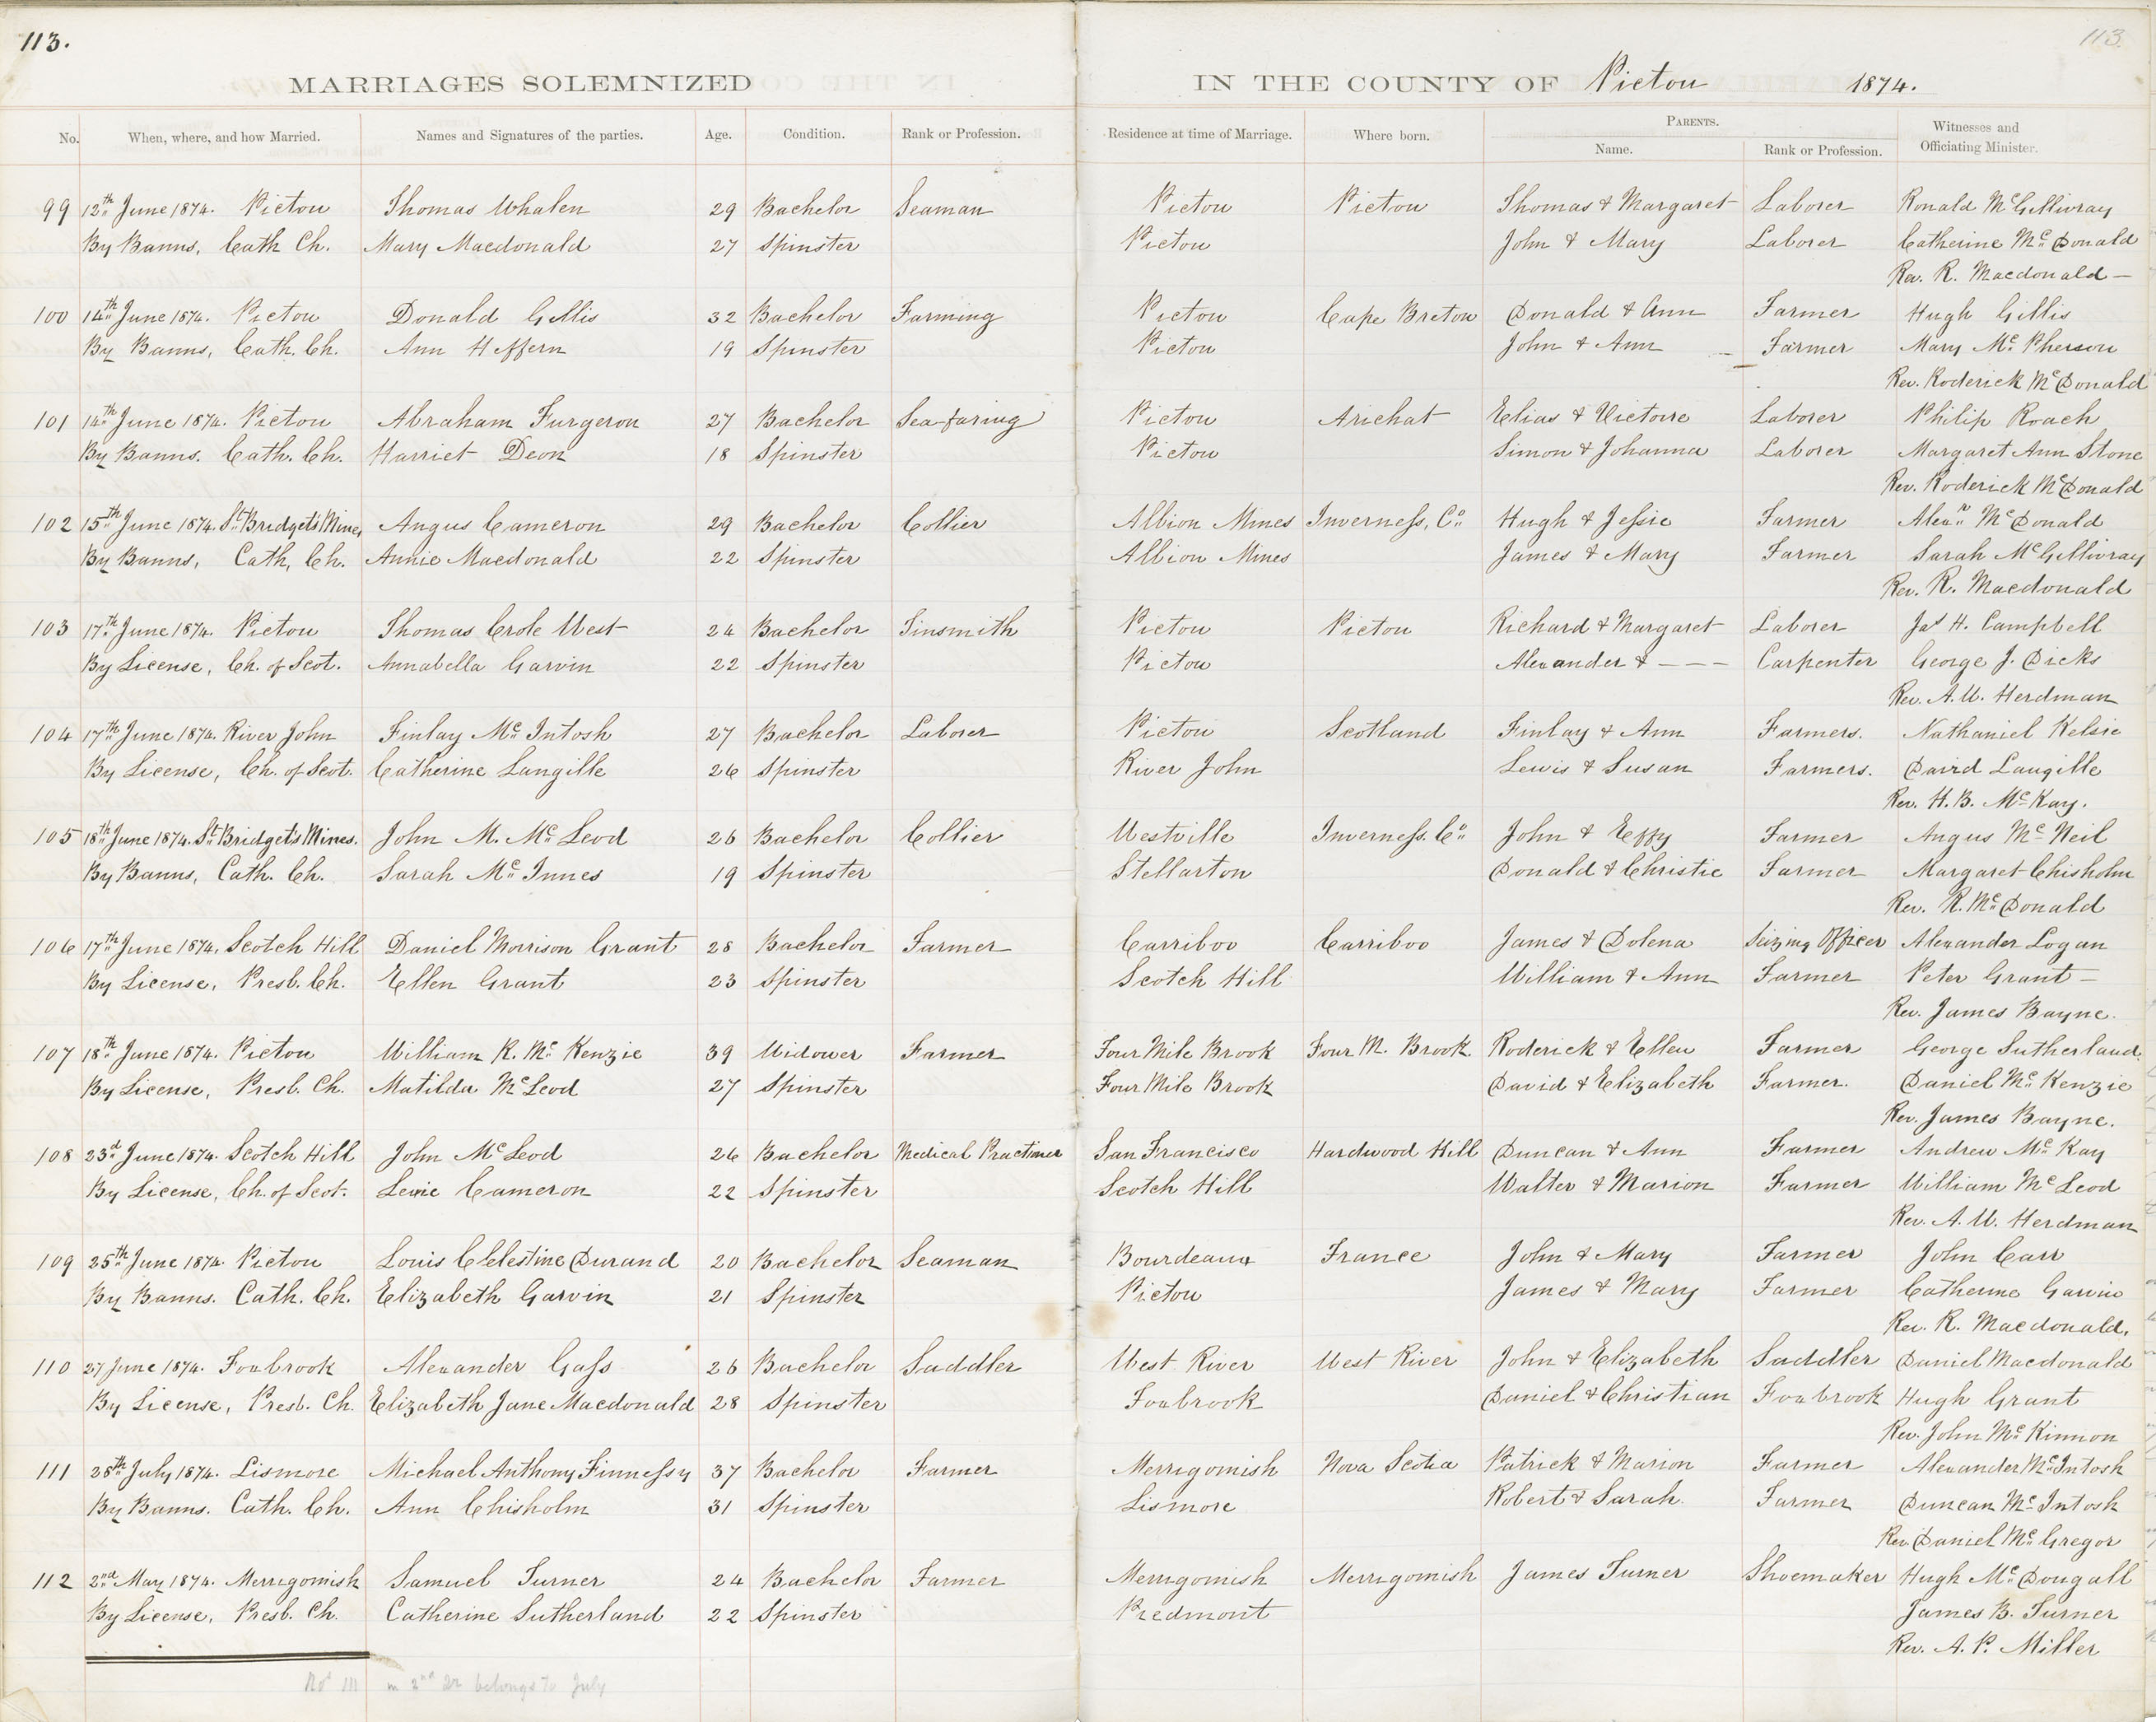 113.
113.
MARRIAGES SOLEMNIZED IN THE COUNTY OF Pictou 1874.
No. When, where, and how Married. Names and Signatures of the parties. Age. Condition. Rank or Profession. Residence at time of Marriage. Where born. PARENTS. Name. Rank or Profession. Witnesses and Officiating Minister.
99 12th June 1874. Pictou Thomas Whalen 29 Bachelor Seaman Pictou Pictou Thomas & Margaret Laborer Ronald McGillivray
By Banns, Cath Ch. Mary Macdonald 27 Spinster Pictou John & Mary Laborer Catherine Mc Donald
Rev. R. Macdonald —
100 14th June 1874. Pictou Donald Gillis 32 Bachelor Farming Pictou Cape Breton Donald & Ann Farmer Hugh Gillis
By Banns, Cath. Ch. Ann Heffern 19 Spinster Pictou John & Ann Farmer Mary Mc Pherson
Rev. Roderick McDonald
101 14th June 1874. Pictou Abraham Furgeron 27 Bachelor Sea-faring Pictou Arichat Elias & Victoire Laborer Philip Roach
By Banns. Cath. Ch. Harriet Deon 18 Spinster Pictou Simon & Johanna Laborer Margaret Ann Stone
Rev. Roderick McDonald
102 15th June 1874. St Bridget's Mines Angus Cameron 29 Bachelor Collier Albion Mines Inverness, Co Hugh & Jessie Farmer Alexr McDonald
By Banns, Cath, Ch. Annie Macdonald 22 Spinster Albion Mines James & Mary Farmer Sarah McGillivray
Rev. R. Macdonald
103 17th June 1874. Pictou Thomas Crole West 24 Bachelor Tinsmith Pictou Pictou Richard & Margaret Laborer Jas H. Campbell
By License, Ch. of Scot. Annabella Garvin 22 Spinster Pictou Alexander & — — — Carpenter George J. Dicks
Rev. A. W. Herdman
104 17th June 1874. River John Finlay Mc Intosh 27 Bachelor Laborer Pictou Scotland Finlay & Ann Farmers. Nathaniel Kelsie
By License, Ch. of Scot. Catherine Langille 26 Spinster River John Lewis & Susan Farmers. David Langille
Rev. H. B. McKay.
105 18th June 1874. St Bridget's Mines. John M. Mc Leod 26 Bachelor Collier Westville Inverness. Co John & Effy Farmer Angus Mc Neil
By Banns, Cath. Ch. Sarah Mc Innes 19 Spinster Stellarton Donald & Christie Farmer Margaret Chisholm
Rev. R. Mc Donald
106 17th June 1874. Scotch Hill Daniel Morrison Grant 28 Bachelor Farmer Carriboo Carriboo James & Dolena Seizing Officer Alexander Logan
By License, Presb. Ch. Ellen Grant 23 Spinster Scotch Hill William & Ann Farmer Peter Grant —
Rev. James Bayne.
107 18th June 1874. Pictou William R. Mc Kenzie 39 Widower Farmer Four Mile Brook Four M. Brook. Roderick & Ellen Farmer George Sutherland.
By License, Presb. Ch. Matilda McLeod 27 Spinster Four Mile Brook David & Elizabeth Farmer. Daniel Mc Kenzie
Rev. James Bayne.
108 23d June 1874. Scotch Hill John McLeod 26 Bachelor Medical Practiner San Francisco Hardwood Hill Duncan & Ann Farmer Andrew Mc Kay
By License, Ch. of Scot. Cameron 22 Spinster Scotch Hill Walter & Marion Farmer William Mc Leod
Rev. A. W. Herdman
109 25th June 1874. Pictou Louis Celestine Durand 20 Bachelor Seaman Bourdeaux France John & Mary Farmer John Carr
By Banns. Cath. Ch. Elizabeth Garvin 21 Spinster Pictou James & Mary Farmer Catherine Garvin
Rev. R. Macdonald.
110 27 June 1874. Foxbrook Alexander Gass 26 Bachelor Saddler West River West River John & Elizabeth Saddler Daniel Macdonald
By License, Presb. Ch. Elizabeth Jane Macdonald 28 Spinster Foxbrook Daniel & Christian Foxbrook Hugh Grant
Rev. John Mc Kinnon
111 28th July 1874. Lismore Michael Anthony Finnessy 37 Bachelor Farmer Merrigomish Nova Scotia Patrick & Marion Farmer Alexander McIntosh
By Banns. Cath. Ch. Ann Chisholm 31 Spinster Lismore Robert & Sarah. Farmer Duncan Mc Intosh
Rev. Daniel Mc Gregor
112 2nd May 1874. Merrigomish Samuel Turner 24 Bachelor Farmer Merrigomish Merrigomish James Turner Shoemaker Hugh Mc Dougall
By License, Presb. Ch. Catherine Sutherland 22 Spinster Piedmont James B. Turner
Rev. A. P. Miller
No 111 in 2nd Qr belongs to July